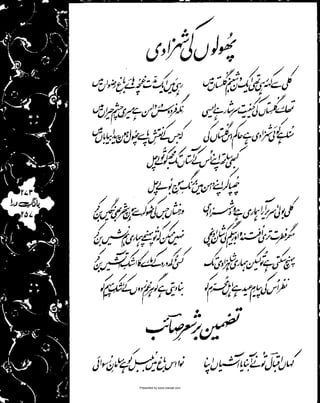 پھولوں کی شہزادی
کلی سے کہہ رہی تھی ایک دن شبنم گلستاں میں
رہی میں ایک مدت غنچہ ہائے باغ رضواں میں
تمھارے گلستاں کی کیفیت سرشار ہے ایسی
نگہ فردوس در دامن ہے میری چشم حیراں میں
سنا ہے کوئی شہزادی ہے حاکم اس گلستاں کی
کہ جس کے نقش پا سے پھول ہوں پیدا بیاباں میں
کبھی ساتھ اپنے اس کے آستاں تک مجھ کو تو لے چل
چھپا کر اپنے دامن میں برنگ موج بو لے چل
کلی بولی سریر آرا ہماری ہے وہ شہزادی
درخشاں جس کی ٹھوکر سے ہوں پتھر بھی نگیں بن کر
مگر فطرت تری افتندہ اور بیگم کی شان اونچی
نہیں ممکن کہ تو پہنچے ہماری ہم نشیں بن کر
پہنچ سکتی ہے تو لیکن ہماری شاہزادی تک
کسی دکھ درد کے مارے کا اشک آتشیں بن کر
نظر اس کی پیام عید ہے اہل محرم کو
بنا دیتی ہے گوہر غم زدوں کے اشک پیہم کو
تضمین بر شعر صائب
کہاں اقبال تو نے آ بنایا آشیاں اپنا
نوا اس باغ میں بلبل کو ہے سامان رسوائی
۲۴۳
بانگ درا
۲۵۷